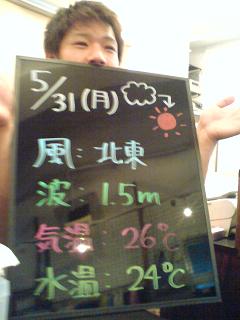 5/31(月)
風: 北東
波: 1.5m
気温: 26℃
水温: 24℃